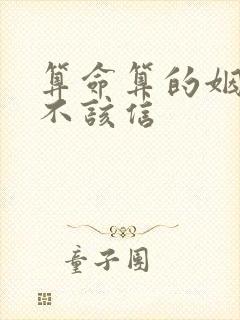 算命算的姻
不该信
童子团